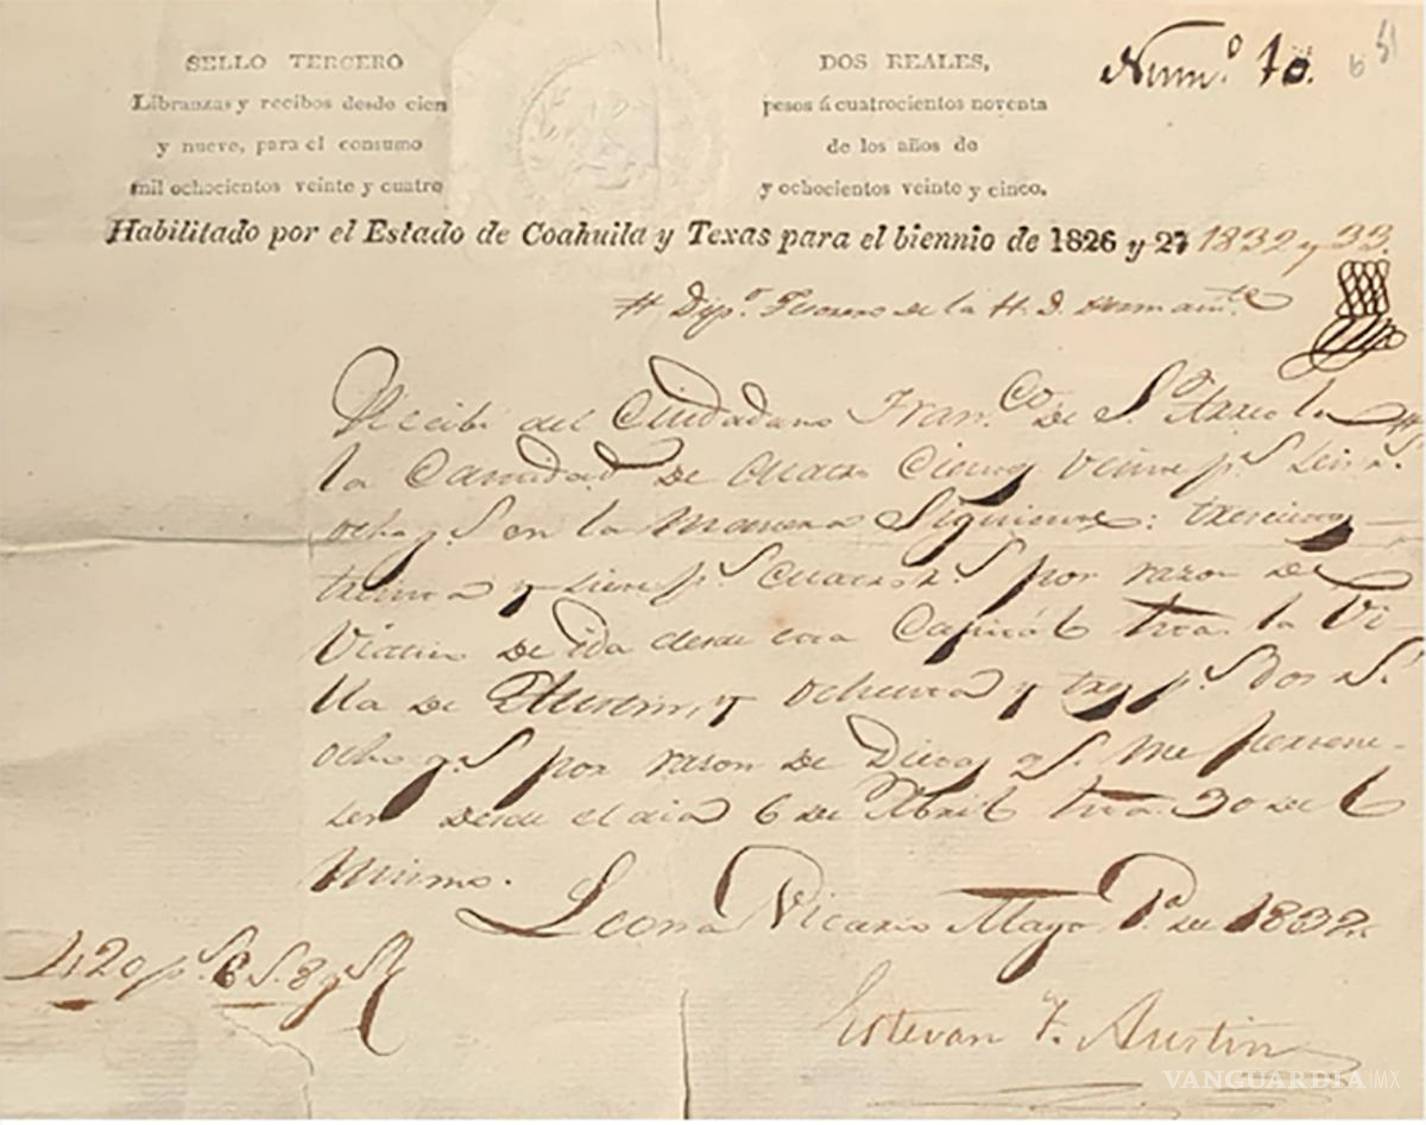 Num.º 10.
SELLO TERCERO
DOS REALES,
Libranzas y recibos desde cien
pesos á cuatrocientos noventa
y nueve, para el consumo
de los años de
mil ochocientos veinte y cuatro
y ochocientos veinte y cinco.
Habilitado por el Estado de Coahuila y Texas para el biennio de 1826 y 27 1832 y 33.
Dip.º Tesorero de la H. D. Perman.te
Recibí del Ciudadano Fran.co de S.
la Cantidad de Cuatro Cientos Veinte p.s seis r.s
ocho g.s en la Manera Siguiente: trescientos
treinta y siete p.s Cuatro r.s por razon de
Viatico de ida desde esta Capitál hta. la Vi-
lla de Austin, y ochenta y tres p.s Dos r.s
ocho g.s por razon de Dietas q.s me pertene-
sen desde el dia 6 de Abril hta. 30 del
Mismo.
Leona Vicario Mayo 1.º de 1832.
420 p.s 6 r.s 8 g.s
Estevan F. Austin
VANGUARDIA MX